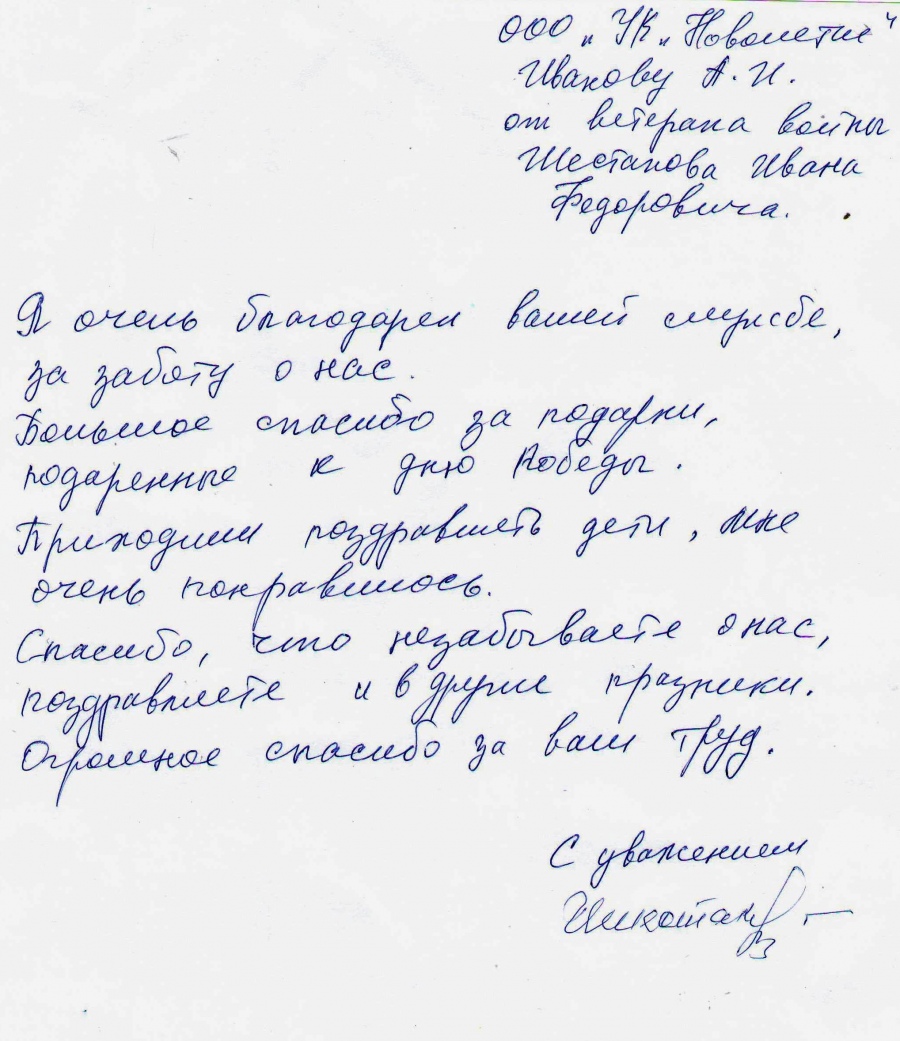 ООО "УК "Новолетие"
Иванову А.И.
от ветерана войны
Шестакова Ивана
Федоровича.
Я очень благодарен вашей службе,
за заботу о нас.
Большое спасибо за подарки,
подаренные к дню Победы.
Приходили поздравлять дети, мне
очень понравилось.
Спасибо, что незабываете онас,
поздравляете и в другие празники.
Огромное спасибо за ваш труд.
С уважением